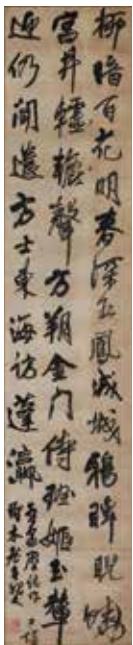 柳暗百花明春深五鳳城城鴉睥睨曉
宮井轆轤聲方朔金门侍班姬玉輦
迎仍聞遣方士東海訪蓬瀛